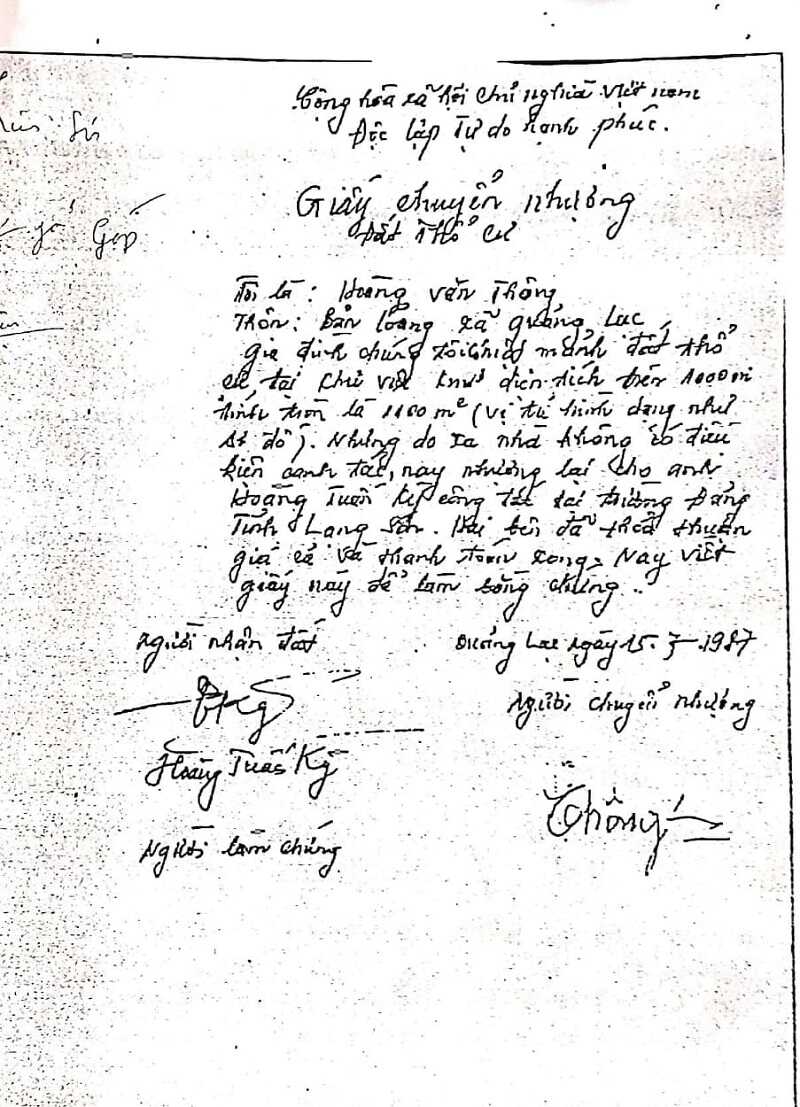 Cộng hòa xã hội chủ nghĩa việt nam
Độc lập Tự do hạnh phúc.
Giấy chuyển nhượng
Đất Thổ cư
Tôi là : Hoàng Văn Thông
Thôn: Bản Loỏng xã Quảng Lạc
gia đình chúng tôi có mảnh đất thổ
cư, tại khu diện tích trên 1000 m
tính tròn là 1100 m² (vị trí hình dạng như
sơ đồ). Nhưng do xa nhà không có điều
kiện canh tác, nay nhượng lại cho anh
Hoàng Tuấn Kỳ công tác tại trường Đảng
Tỉnh Lạng Sơn. Hai bên đã thoả thuận
giá cả và thanh toán xong, Nay viết
giấy này để làm bằng chứng ..
Người nhận đất
Quảng Lạc ngày 15. 1987
Người chuyển nhượng
Hoàng Tuấn Kỳ
Thông
Người làm chứng
Góp